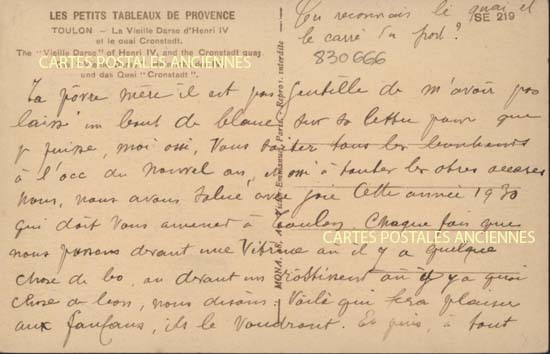 LES PETITS TABLEAUX DE PROVENCE
TOULON - La Vieille Darse d'Henri IV
et le quai Cronstadt.
The "Vieille Darse" of Henri IV, and the Cronstadt quay.
und das Quai "Cronstadt".
CARTES POSTALES ANCIENNES
Tu reconnais le quai et
le carré du port?
SE 219
830666
Reprod. interdite
La pôvre mère il est pas gentille de m'avoir pas
laissé un bout de blanc sur sa lettre pour que
je puisse, moi ossi, vous tous les bonheurs
à l'occ du nouvel an, et ossi à toutes les otres
Nous, nous avons salué avec joie cette année 1930
qui doit vous amener à Toulon Chaque fois que
nous passons devant une vitrine an il y a quelque
CARTES POSTALES ANCIENNES
chose de bo, ou devant un an il y a quoi
chose de bon, nous disons: Voilà qui fera plaisir
aux fanfans, ils le voudront. Et puis, à tout